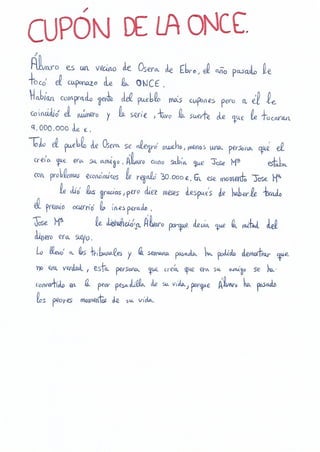 CUPÓN DE LA ONCE.
Álvaro es un vecino de Osera de Ebro, el año pasado le
tocó el cuponazo de la ONCE.
Habían comprado gente del pueblo más cupones pero a él le
coincidió el número y la serie, tuvo la suerte de que le tocaran
9.000.000 de €.
Todo el pueblo de Osera se alegró mucho, menos una persona que él
creía que era su amigo. Álvaro como sabía que Jose Mª estaba
con problemas económicos le regaló 30.000 €. En ese momento Jose Mª
le dió las gracias, pero diez meses después de haberle tocado
el premio ocurrió lo inesperado.
Jose Mª le denunció a Álvaro porque decía que la mitad del
dinero era suyo.
Lo llevó a los tribunales y la semana pasada ha podido demostrar que
no era verdad, esta persona que creía que era su amigo se ha
convertido en la peor pesadilla de su vida, porque Álvaro ha pasado
los peores momentos de su vida.